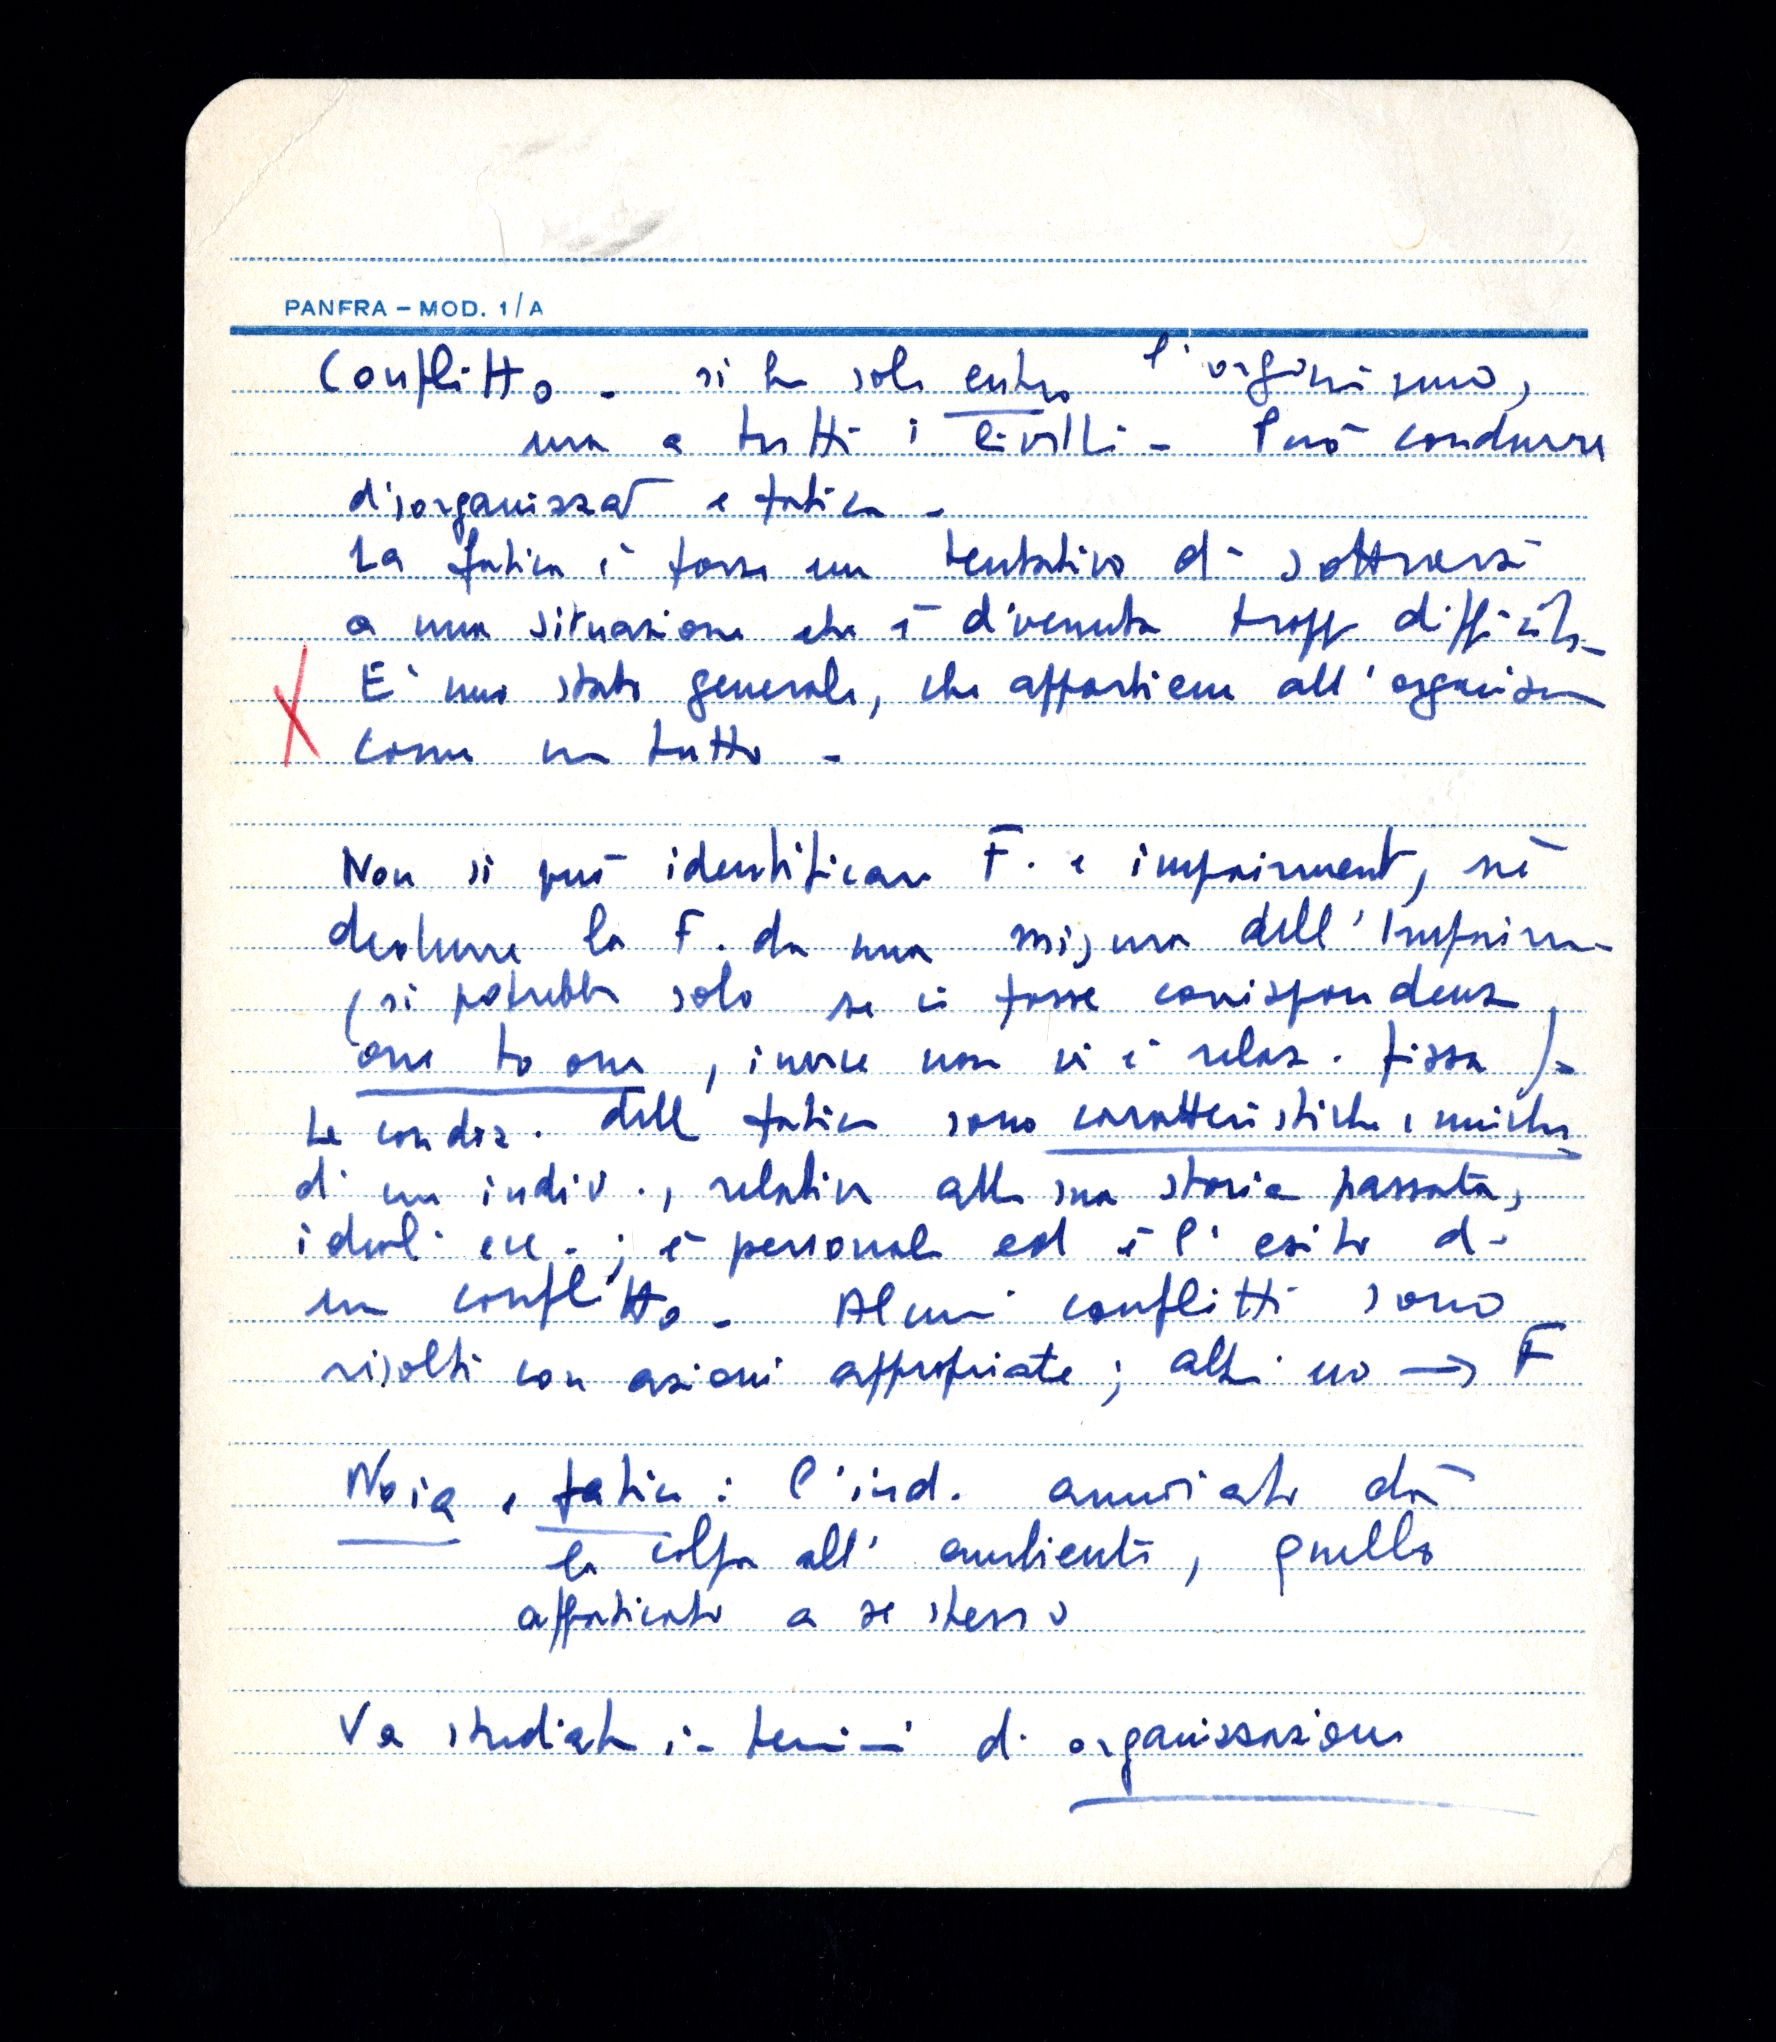 PANFRA – MOD. 1/A
Conflitto - si ha solo entro l'organismo,
ma a tutti i livelli - Può condurre
disorganizzaz e fatica -
La fatica è forse un tentativo di sottrarsi
a una situazione che è divenuta tropp difficile -
E' uno stato generale, che appartiene all'organism
come un tutto -
Non si può identificare F. e impairment, nè
dedurre la F. da una misura dell'Impairm-
(si potrebbe solo se ci fosse corrispondenza
one to one, invece non vi è relaz. fissa) -
Le condiz. della fatica sono caratteristiche e uniche
di un indiv., relative alla sua storia passata,
ideali ecc.; è personale ed è l'esito di
un conflitto - Alcuni conflitti sono
risolti con azioni appropriate; altri no → F
Noia e fatica: l'ind. annoiato dà
la colpa all'ambiente, quello
affaticato a se stesso
Va studiata in termini di organizzazione